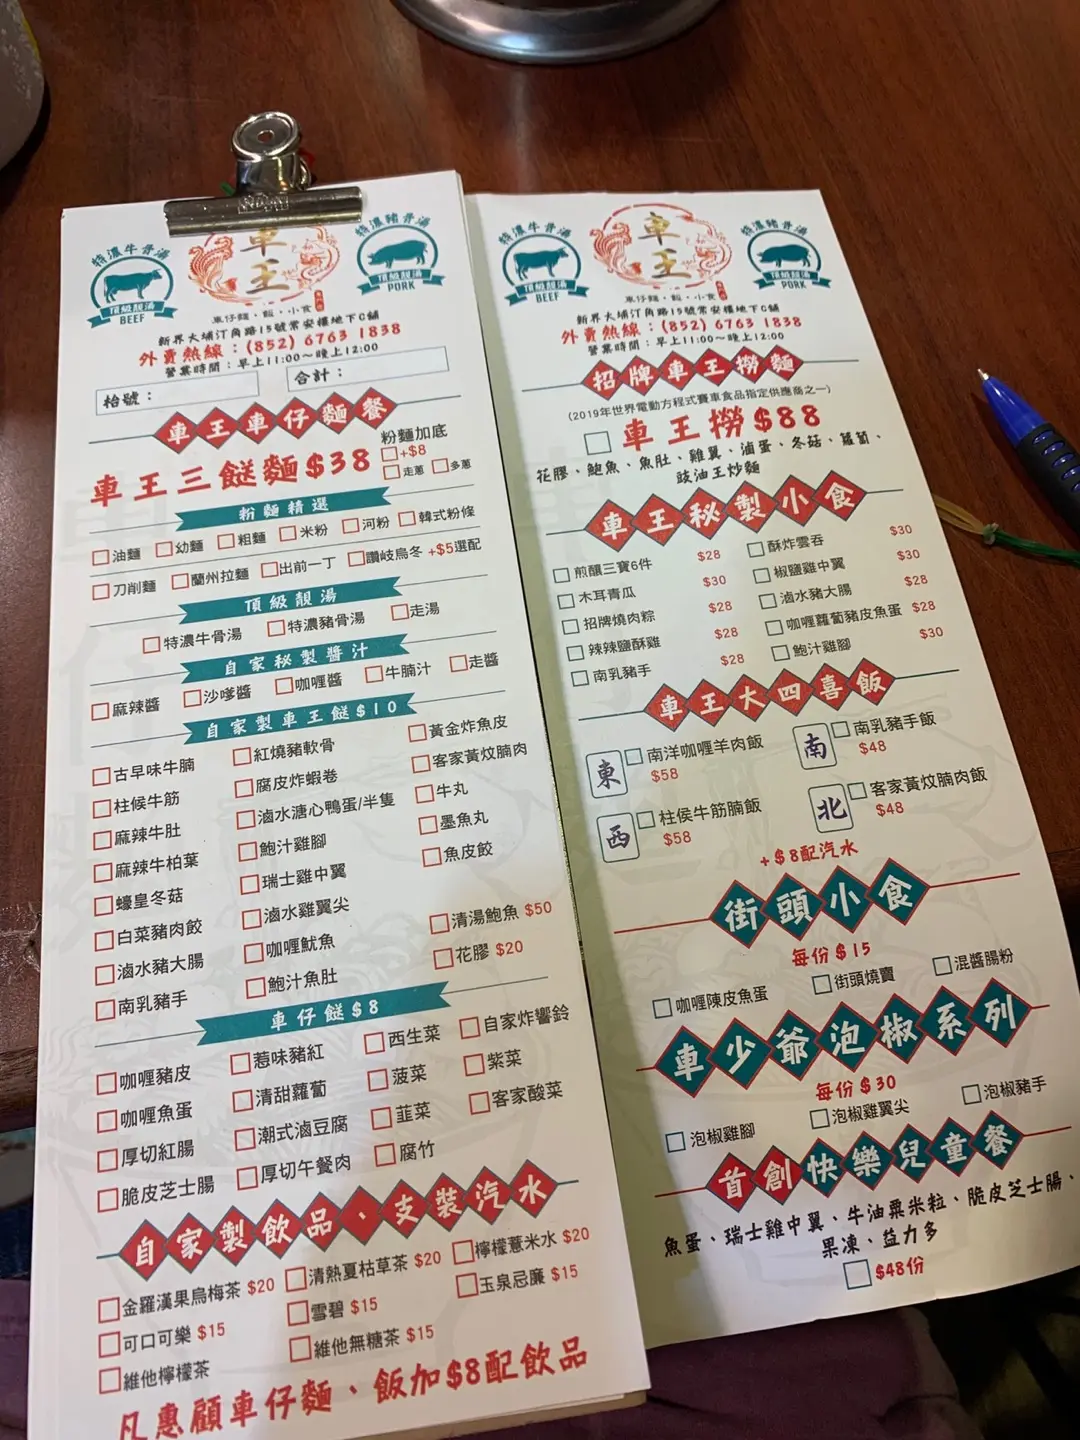 特濃牛骨湯
頂級靚湯
BEEF
車王
特濃豬骨湯
頂級靚湯
PORK
車仔麵・飯・小食
新界大埔汀角路15號常安樓地下C舖
外賣熱線：(852) 6763 1838
營業時間：早上11:00～晚上12:00
枱號：
合計：
車王車仔麵餐
車王三餸麵$38
粉麵加底
+$8
走蔥 多蔥
粉麵精選
油麵 幼麵 粗麵 米粉 河粉 韓式粉條
刀削麵 蘭州拉麵 出前一丁 讚岐烏冬 +$5選配
頂級靚湯
特濃牛骨湯 特濃豬骨湯 走湯
自家秘製醬汁
麻辣醬 沙嗲醬 咖喱醬 牛腩汁 走醬
自家製車王餸$10
古早味牛腩 紅燒豬軟骨 黃金炸魚皮
柱候牛筋 腐皮炸蝦卷 客家黃炆腩肉
麻辣牛肚 滷水溏心鴨蛋/半隻 牛丸
麻辣牛柏葉 鮑汁雞腳 墨魚丸
蠔皇冬菇 瑞士雞中翼 魚皮餃
白菜豬肉餃 滷水雞翼尖
滷水豬大腸 咖喱魷魚 清湯鮑魚 $50
南乳豬手 鮑汁魚肚 花膠 $20
車仔餸$8
咖喱豬皮 惹味豬紅 西生菜 自家炸響鈴
咖喱魚蛋 清甜蘿蔔 菠菜 紫菜
厚切紅腸 潮式滷豆腐 韮菜 客家酸菜
脆皮芝士腸 厚切午餐肉 腐竹
自家製飲品、支裝汽水
金羅漢果烏梅茶 $20 清熱夏枯草茶 $20 檸檬薏米水 $20
可口可樂 $15 雪碧 $15 玉泉忌廉 $15
維他檸檬茶 維他無糖茶 $15
凡惠顧車仔麵、飯加$8配飲品
特濃牛骨湯
頂級靚湯
BEEF
車王
特濃豬骨湯
頂級靚湯
PORK
車仔麵・飯・小食
新界大埔汀角路15號常安樓地下C舖
外賣熱線：(852) 6763 1838
營業時間：早上11:00～晚上12:00
招牌車王撈麵
(2019年世界電動方程式賽車食品指定供應商之一)
車王撈$88
花膠、鮑魚、魚肚、雞翼、滷蛋、冬菇、蘿蔔、
豉油王炒麵
車王秘製小食
煎釀三寶6件 $28 酥炸雲吞 $30
木耳青瓜 $30 椒鹽雞中翼 $30
招牌燒肉粽 $28 滷水豬大腸 $28
辣辣鹽酥雞 $28 咖喱蘿蔔豬皮魚蛋 $28
南乳豬手 $28 鮑汁雞腳 $30
車王大四喜飯
東 南洋咖喱羊肉飯 $58
南 南乳豬手飯 $48
西 柱侯牛筋腩飯 $58
北 客家黃炆腩肉飯 $48
+$8配汽水
街頭小食
每份 $15
咖喱陳皮魚蛋 街頭燒賣 混醬腸粉
車少爺泡椒系列
每份 $30
泡椒雞腳 泡椒雞翼尖 泡椒豬手
首創快樂兒童餐
魚蛋、瑞士雞中翼、牛油粟米粒、脆皮芝士腸、
果凍、益力多
$48份